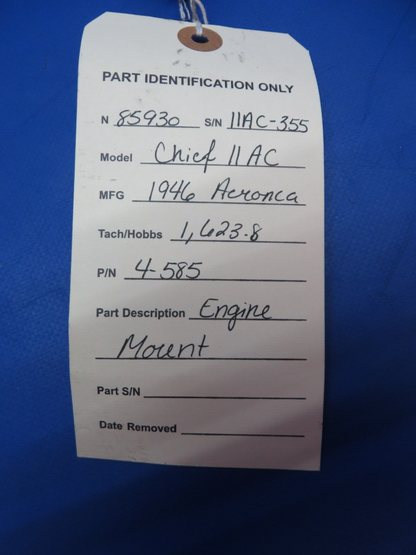 PART IDENTIFICATION ONLY
N 85930 S/N 11AC-355
Model Chief 11AC
MFG 1946 Aeronca
Tach/Hobbs 1,623.8
P/N 4-585
Part Description Engine
Mount
Part S/N
Date Removed